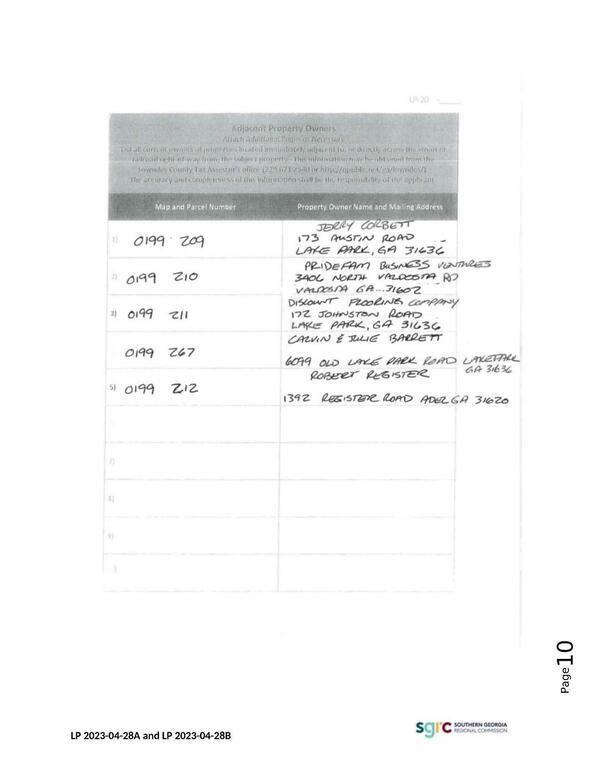 LP-20 -____
Adjacent Property Owners
Attach Additional Pages if Necessary
List all current owners of properties located immediately adjacent to, or directly across the street or
railroad right-of-way from, the subject property. This information may be obtained from the
Lowndes County Tax Assessor's office (229 671-2540 or http://qpublic.net/ga/lowndes/)
The accuracy and completeness of this information shall be the responsibility of the applicant
Map and Parcel Number Property Owner Name and Mailing Address
JERRY CORBETT
1) 0199 209 173 AUSTIN ROAD
LAKE PARK, GA 31636
PRIDEFAM BUSINESS VENTURES
2) 0199 210 3406 NORTH VALDOSTA RD
VALDOSTA GA 31602
DISCOUNT FLOORING COMPANY
3) 0199 211 172 JOHNSTON ROAD
LAKE PARK, GA 31636
CALVIN & JULIE BARRETT
0199 267 6099 OLD LAKE PARK ROAD LAKE PARK
GA 31636
ROBERT REGISTER
5) 0199 212 1392 REGISTER ROAD ADEL GA 31620
7)
8)
9)
Page 10
LP 2023-04-28A and LP 2023-04-28B
sgrc SOUTHERN GEORGIA
REGIONAL COMMISSION